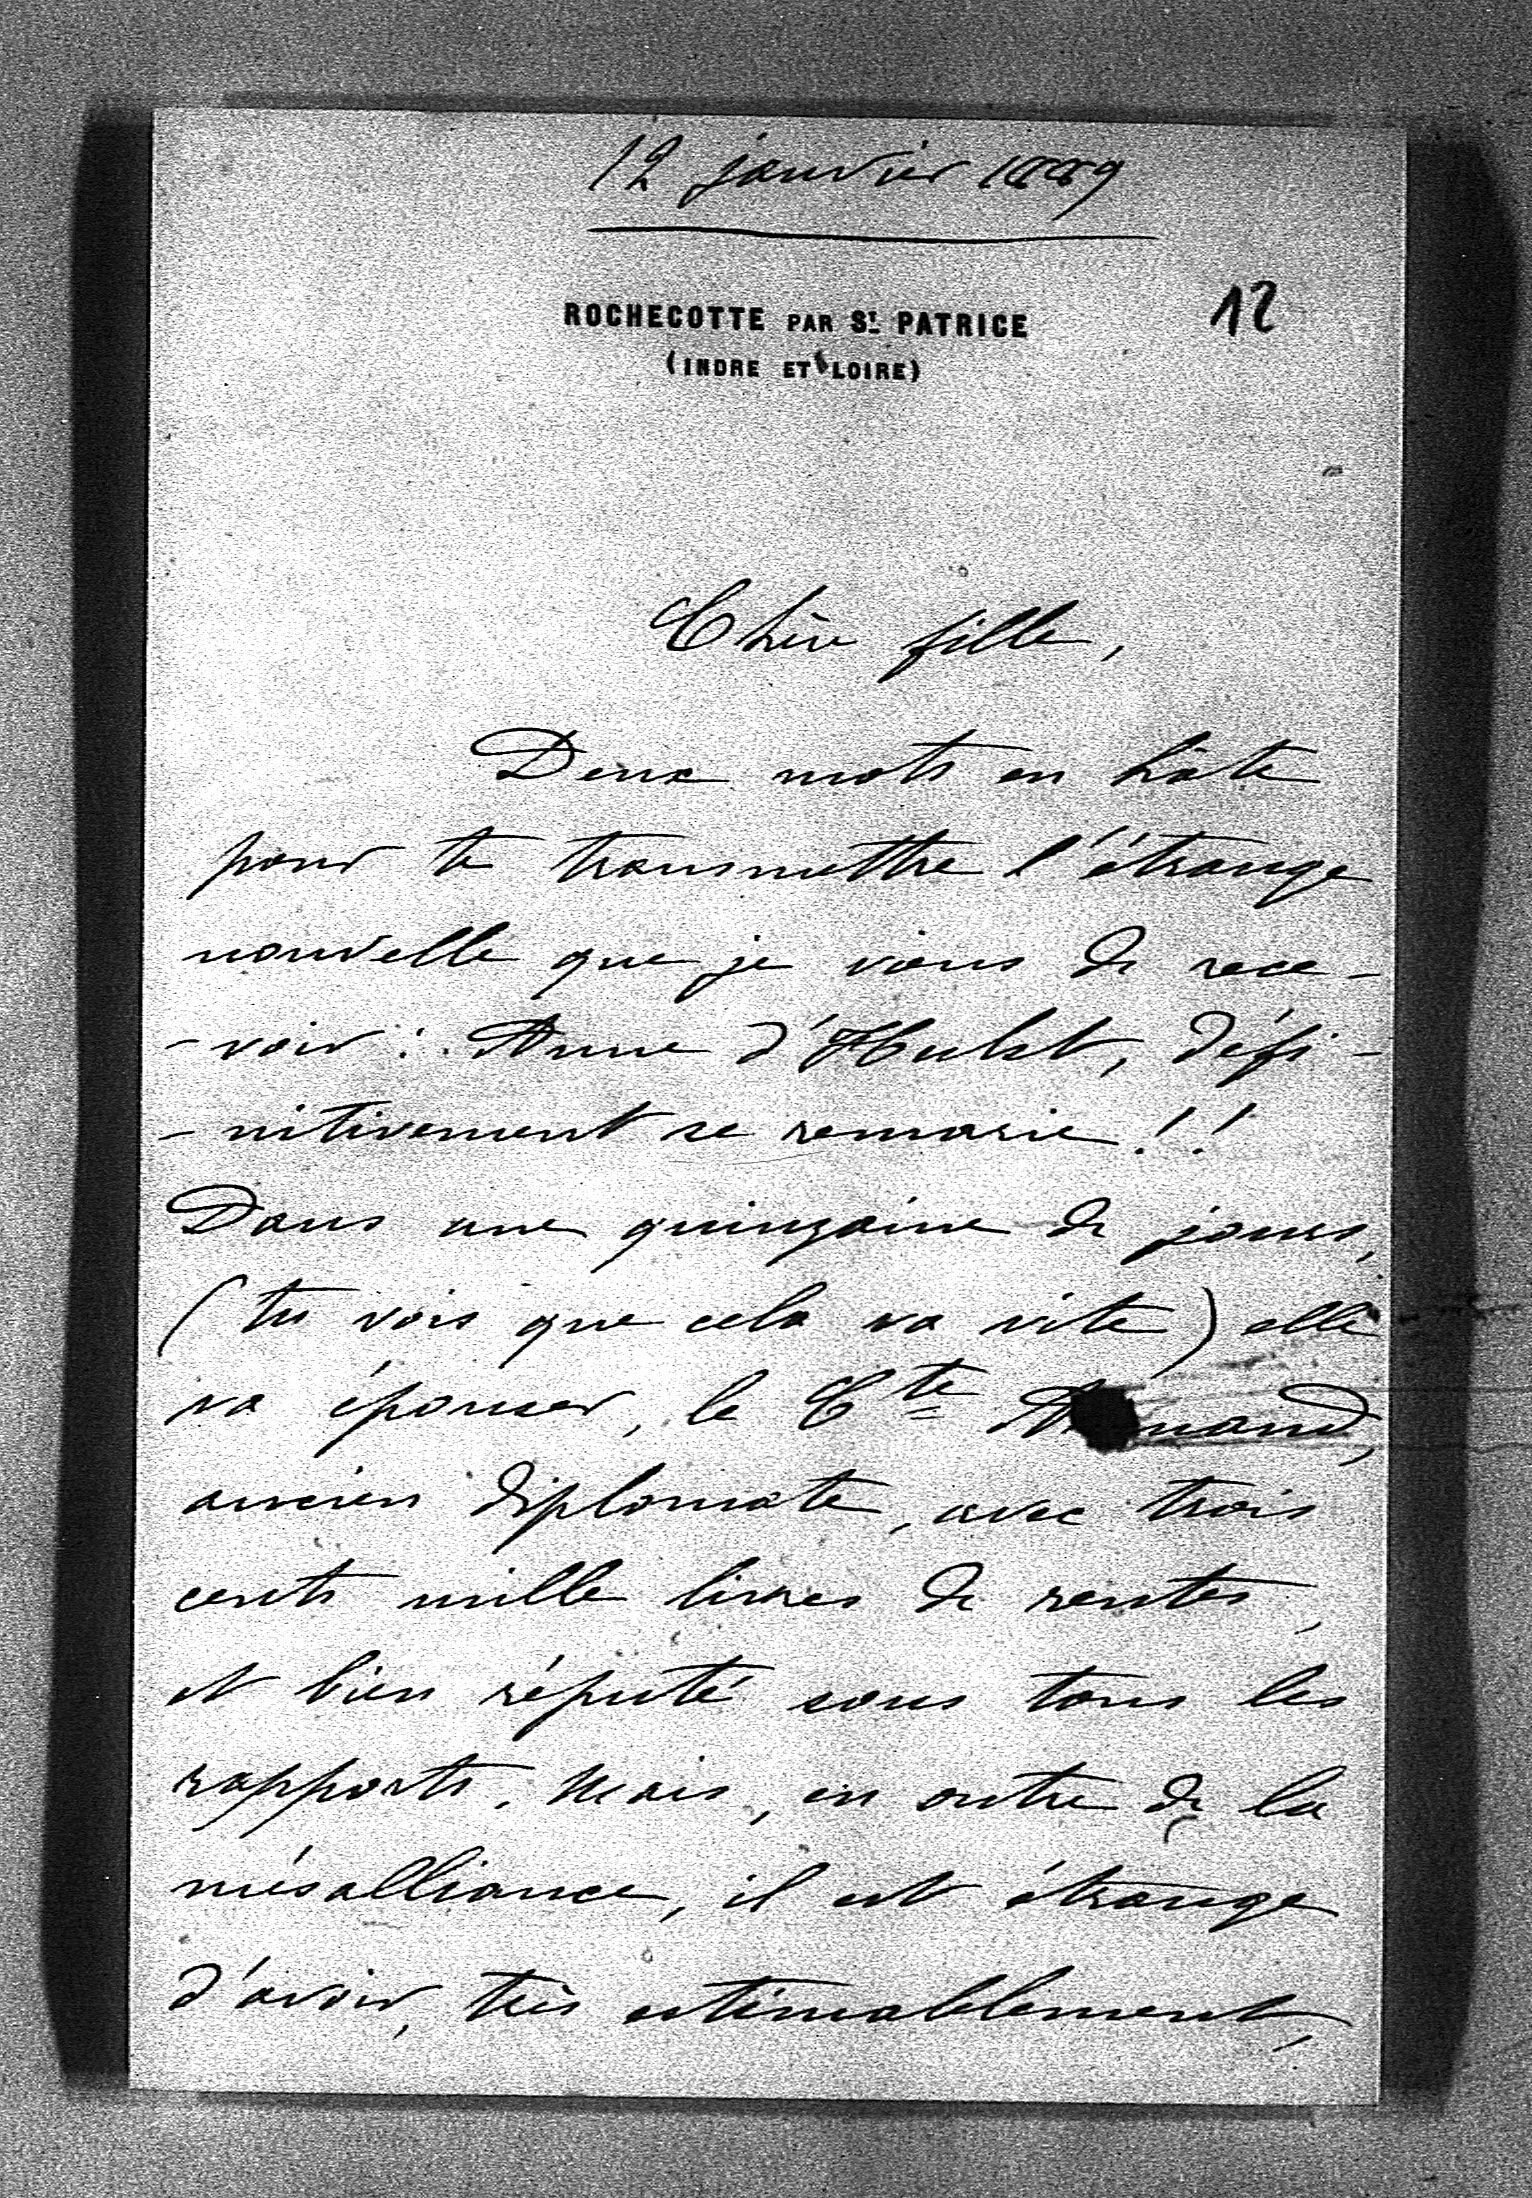 12 janvier 1889
ROCHECOTTE PAR St. PATRICE
12
(INDRE ET LOIRE)
Chère fille,
Deux mots en hâte
pour te transmettre l'étrange
nouvelle que je viens de rece-
-voir : Anne d'Hulst, défi-
-nitivement se remarie !!
Dans une quinzaine de jours,
(tu vois que cela va vite) elle
va épouser, le Cte
ancien diplomate, avec trois
cents mille livres de rentes,
et bien réputé sous tous les
rapports. Mais, en outre de la
mésalliance, il est étrange
d'avoir, très estimablement,